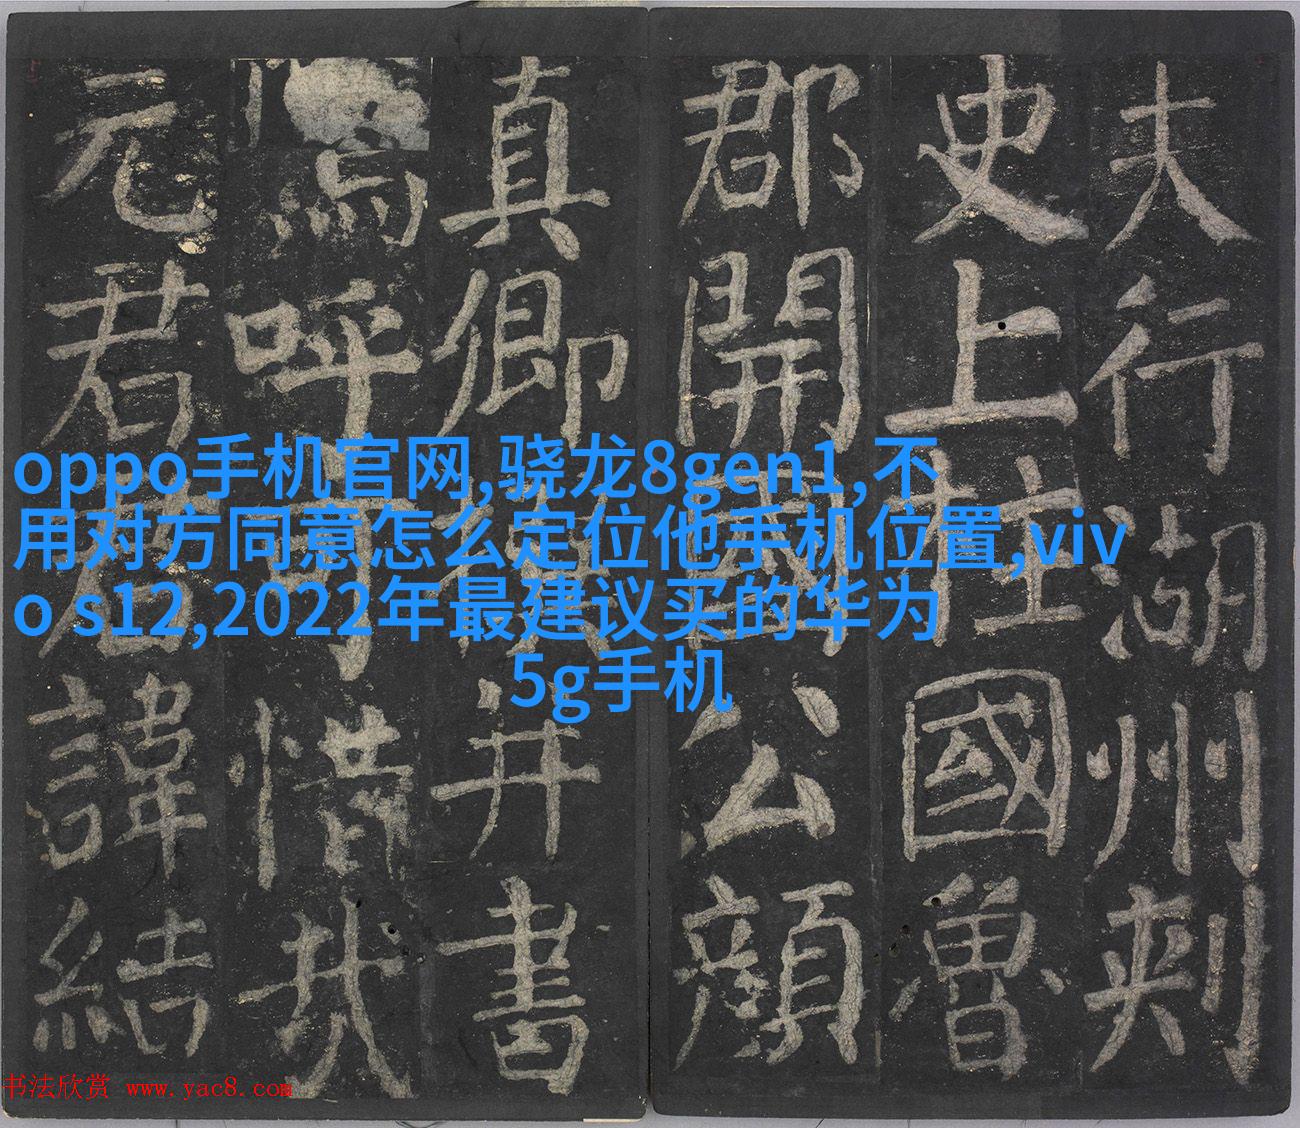 夫行湖州刺
史上柱國魯
郡開國公顏
真卿撰并書
嗚呼可惜哉
元君君諱結
oppo手机官网,骁龙8gen1,不
用对方同意怎么定位他手机位置,viv
o s12,2022年最建议买的华为
5g手机
书法欣赏 www.yac8.com